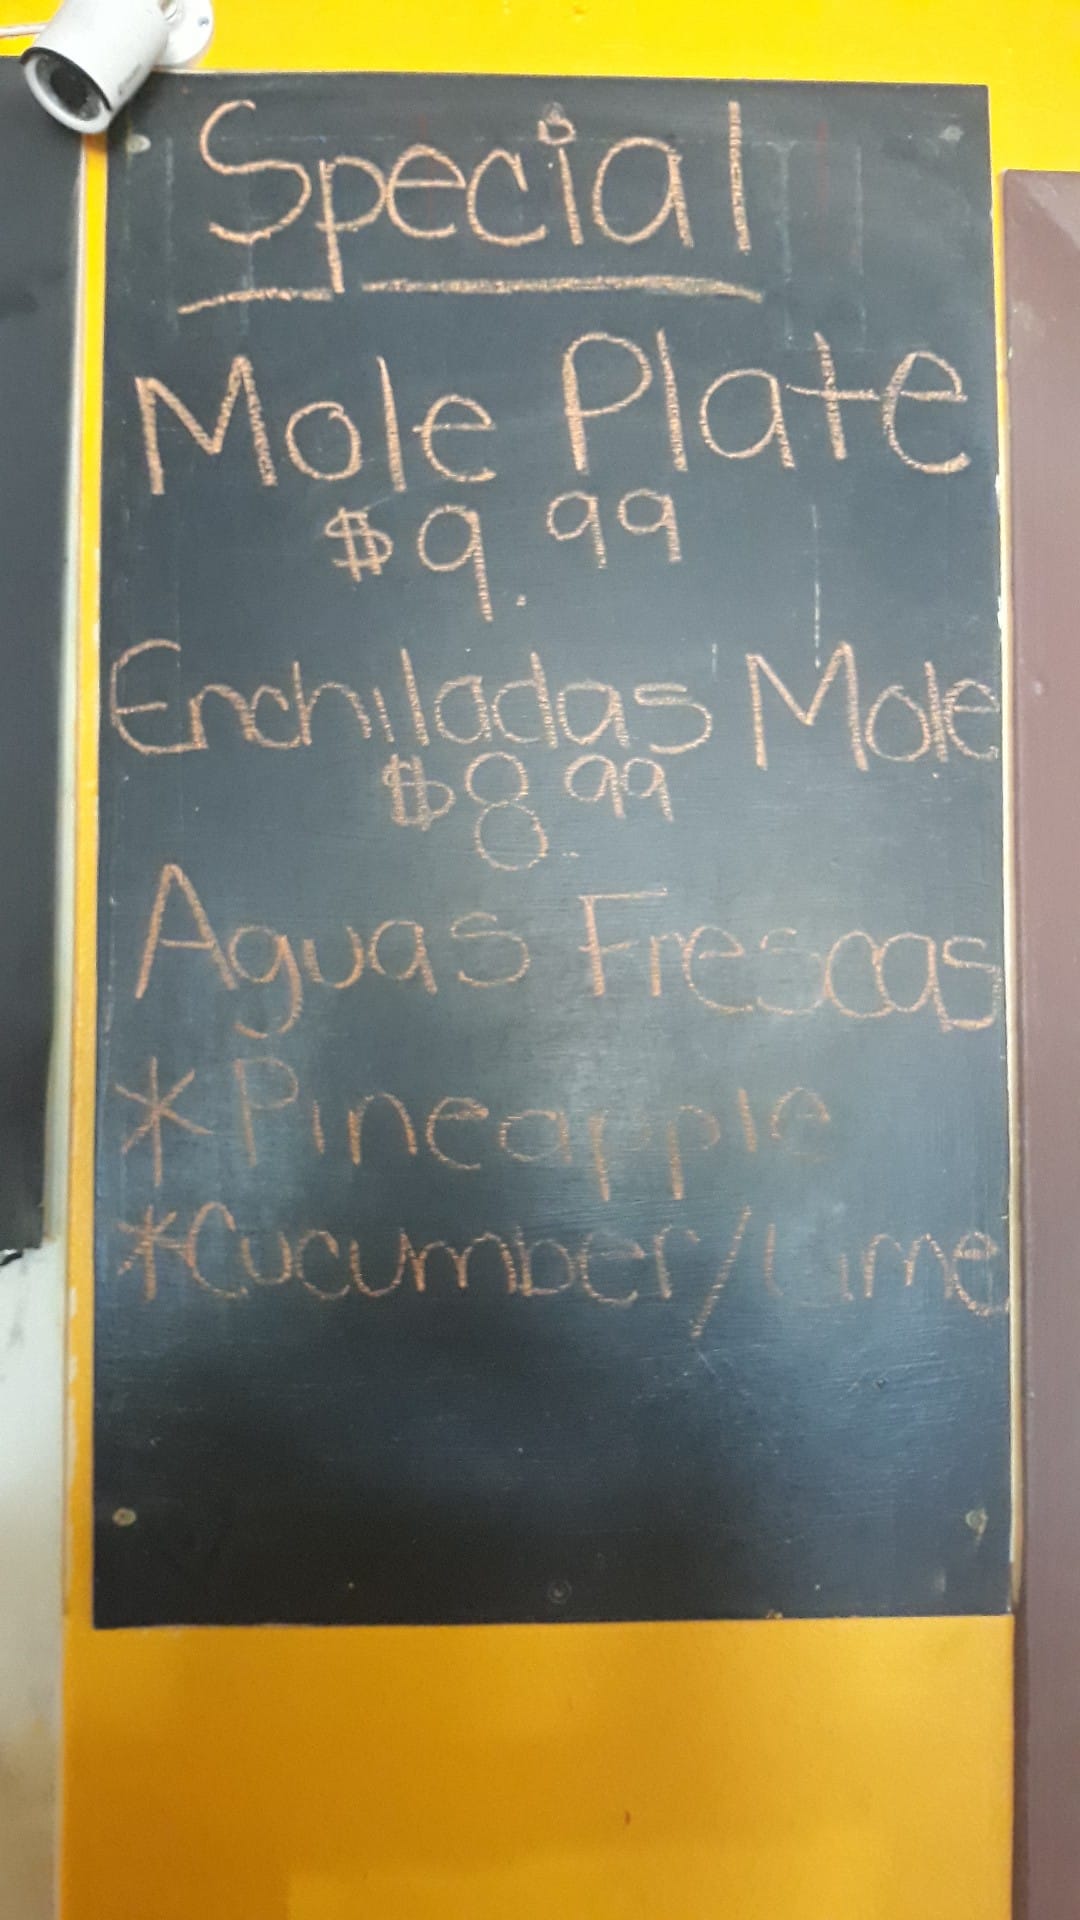 Special
Mole Plate
$9.99
Enchiladas Mole
$8.99
Aguas Frescas
* Pineapple
* Cucumber/Lime